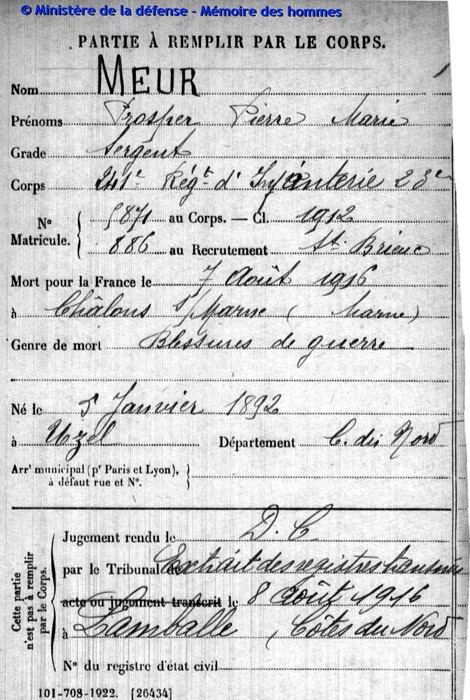 © Ministère de la défense - Mémoire des hommes
PARTIE À REMPLIR PAR LE CORPS.
Nom MEUR
Prénoms Prosper Pierre Marie
Grade Sergent
Corps 241e Régt d'Infanterie 23e
N° Matricule. { 5871 au Corps. — Cl. 1912
886 au Recrutement St. Brieuc
Mort pour la France le 7 Août 1916
à Châlons s/Marne (Marne)
Genre de mort Blessures de guerre
Né le 5 Janvier 1892
à Uzel Département C. du Nord
Arrt municipal (pr Paris et Lyon), à défaut rue et N°. }
Cette partie n'est pas à remplir par le Corps.
Jugement rendu le D. C.
par le Tribunal de Extrait des registres transmis
acte ou jugement transcrit le 8 Août 1916
à Lamballe (Côtes du Nord
N° du registre d'état civil
101-708-1922. [26434]